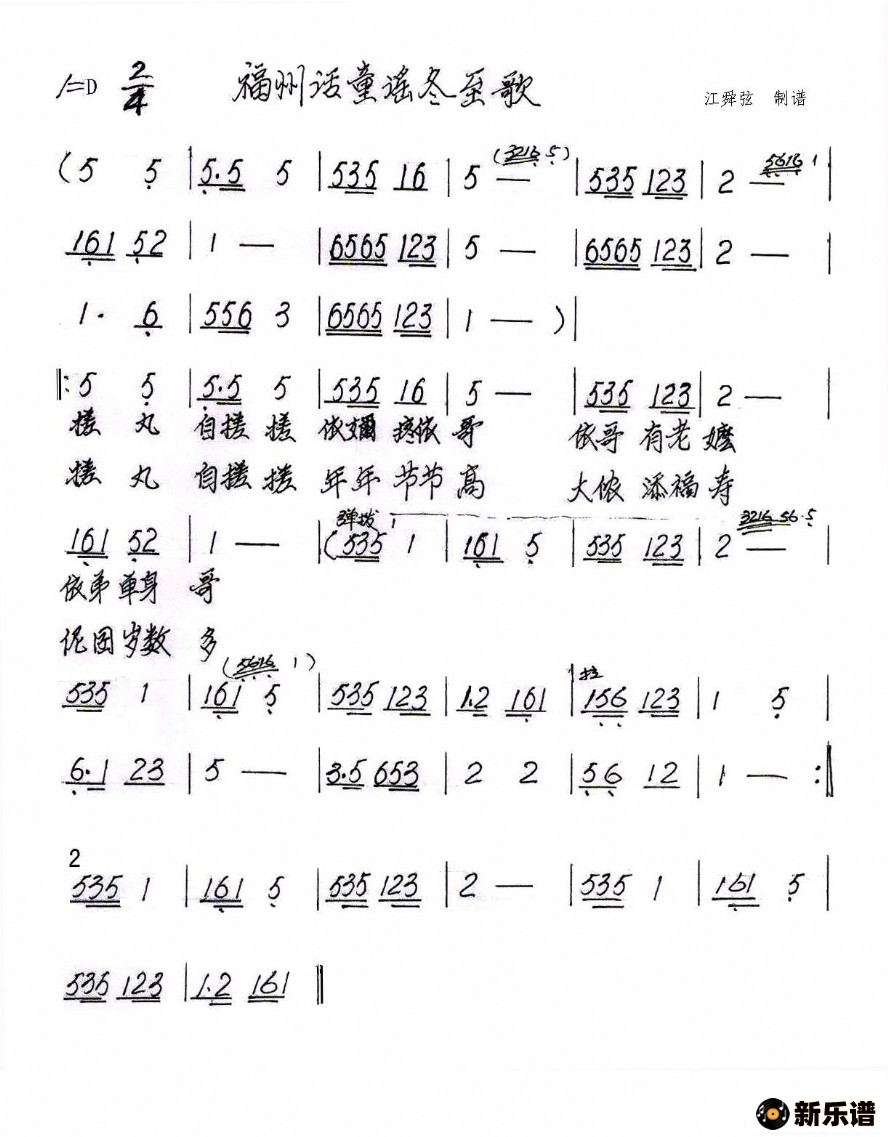 1=D 2/4 福州话童谣冬至歌 江舜弦 制谱
(3216 5)
5616 1
(5 5 | 5·5 5 | 535 16 | 5 — | 535 123 | 2 — |
161 52 | 1 — | 6565 123 | 5 — | 6565 123 | 2 — |
1· 6 | 556 3 | 6565 123 | 1 — ) |
‖: 5 5 | 5·5 5 | 535 16 | 5 — | 535 123 | 2 — |
搓 丸 自搓 搓 依 疼依 哥 依哥 有老 嬷
搓 丸 自搓 搓 年年 节节 高 大侬 添福 寿
弹拨 1 3216 56·5
161 52 | 1 — | (535 1 | 161 5 | 535 123 | 2 — |
依弟 单身 哥
伲囝 岁数 多
(5616 1) 拉
535 1 | 161 5 | 535 123 | 1·2 161 | 156 123 | 1 5 |
6·1 23 | 5 — | 3·5 653 | 2 2 | 56 12 | 1 — :‖
2
535 1 | 161 5 | 535 123 | 2 — | 535 1 | 161 5 |
535 123 | 1·2 161 ‖
新乐谱